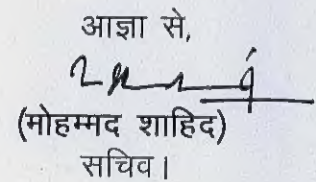 आज्ञा से,
(मोहम्मद शाहिद)
सचिव।